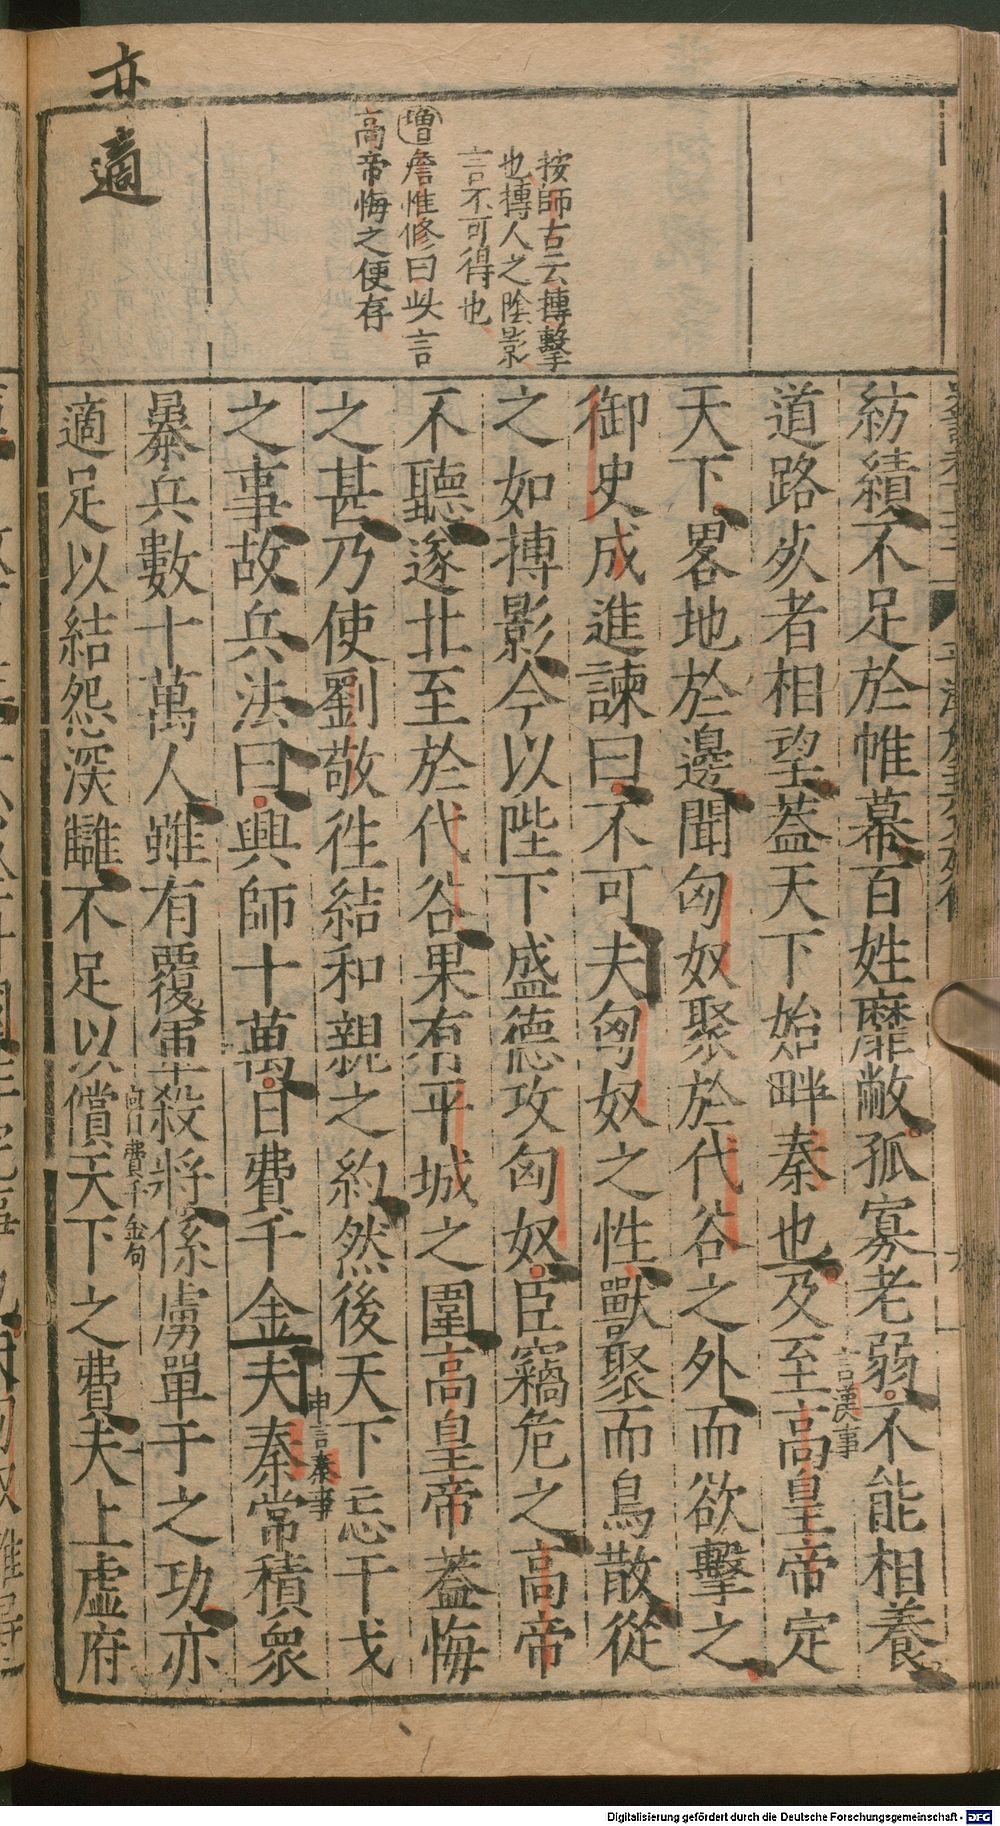 亦適
按師古云摶擊
也摶人之陰影
言不可得也
增詹惟修曰此言
高帝悔之便存
紡績不足於帷幕百姓靡敝孤寡老弱不能相養
道路死者相望葢天下始畔秦也及至高皇帝定
言漢事
天下畧地於邊聞匈奴聚於代谷之外而欲擊之
御史成進諫曰不可夫匈奴之性獸聚而鳥散從
之如摶影今以陛下盛德攻匈奴臣竊危之高帝
不聽遂北至於代谷果有平城之圍高皇帝葢悔
之甚乃使劉敬徃結和親之約然後天下忘干戈
之事故兵法曰興師十萬日費千金夫秦常積衆
申言秦事
暴兵數十萬人雖有覆軍殺將係虜單于之功亦
適足以結怨深讎不足以償天下之費夫上虛府
向日費千金句
Digitalisierung gefördert durch die Deutsche Forschungsgemeinschaft - DFG